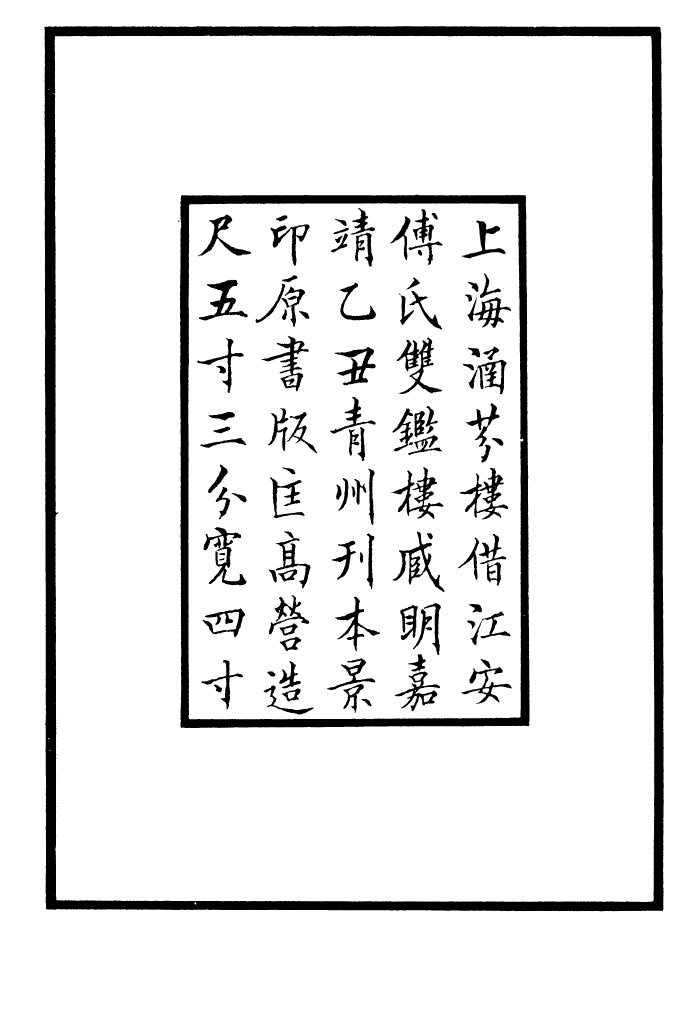 上海涵芬樓借江安
傅氏雙鑑樓臧明嘉
靖乙丑青州刊本景
印原書版匡高營造
尺五寸三分寬四寸